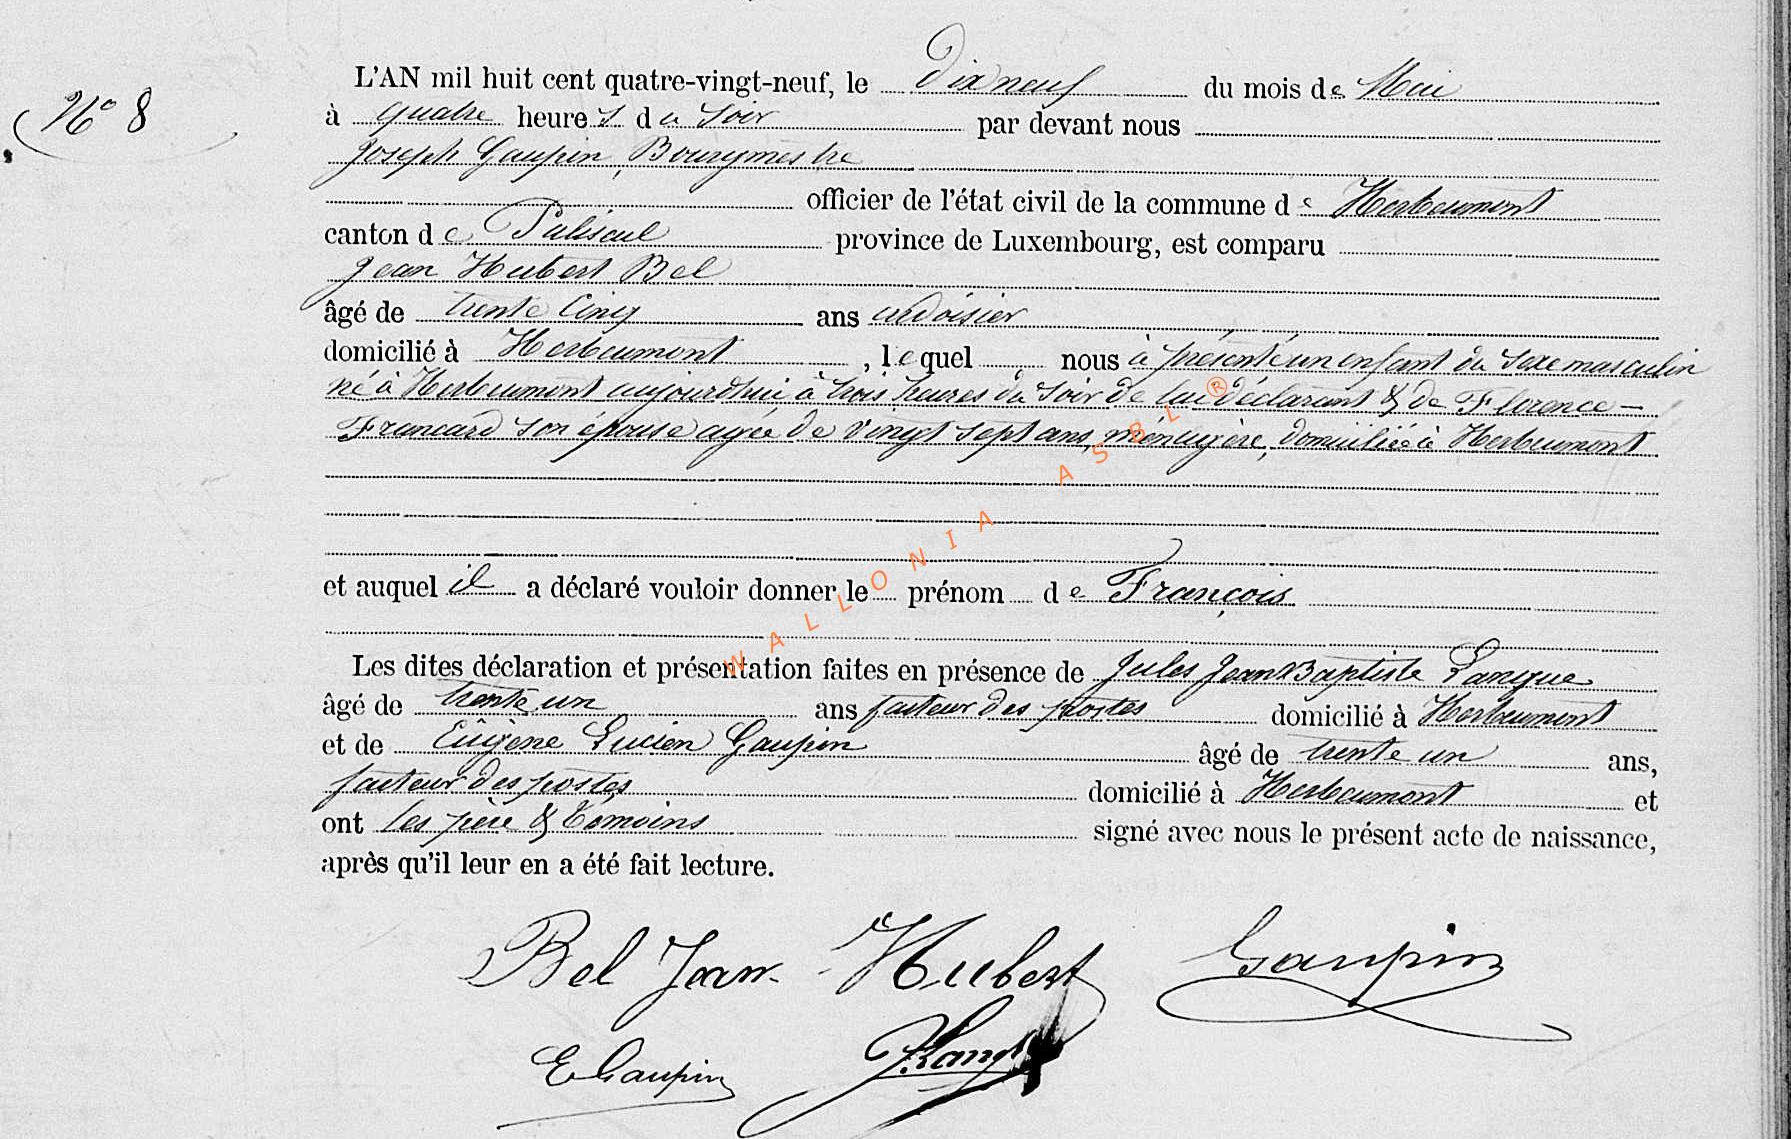 L'AN mil huit cent quatre-vingt-neuf, le Dix neuf du mois de Mai
N° 8
à quatre heures du Soir par devant nous
Joseph Gaupin, Bourgmestre
officier de l'état civil de la commune de Herbeumont
canton de Paliseul province de Luxembourg, est comparu
Jean Hubert Bel
âgé de trente Cinq ans ardoisier
domicilié à Herbeumont, lequel nous à présenté un enfant du Sexe masculin
né à Herbeumont aujourdhui, à trois heures du Soir de lui déclarant & de Florence –
Francard son épouse agée de vingt sept ans, ménagère, domiciliée à Herbeumont
et auquel il a déclaré vouloir donner le prénom de François
Les dites déclaration et présentation faites en présence de Jules Jean Baptiste Langue
âgé de trente un ans facteur des postes domicilié à Herbeumont
et de Eugène Lucien Gaupin âgé de trente un ans,
facteur des postes domicilié à Herbeumont et
ont les père & témoins signé avec nous le présent acte de naissance,
après qu'il leur en a été fait lecture.
Bel Jean Hubert Gaupin
E Gaupin
WALLONIA ASBL ®